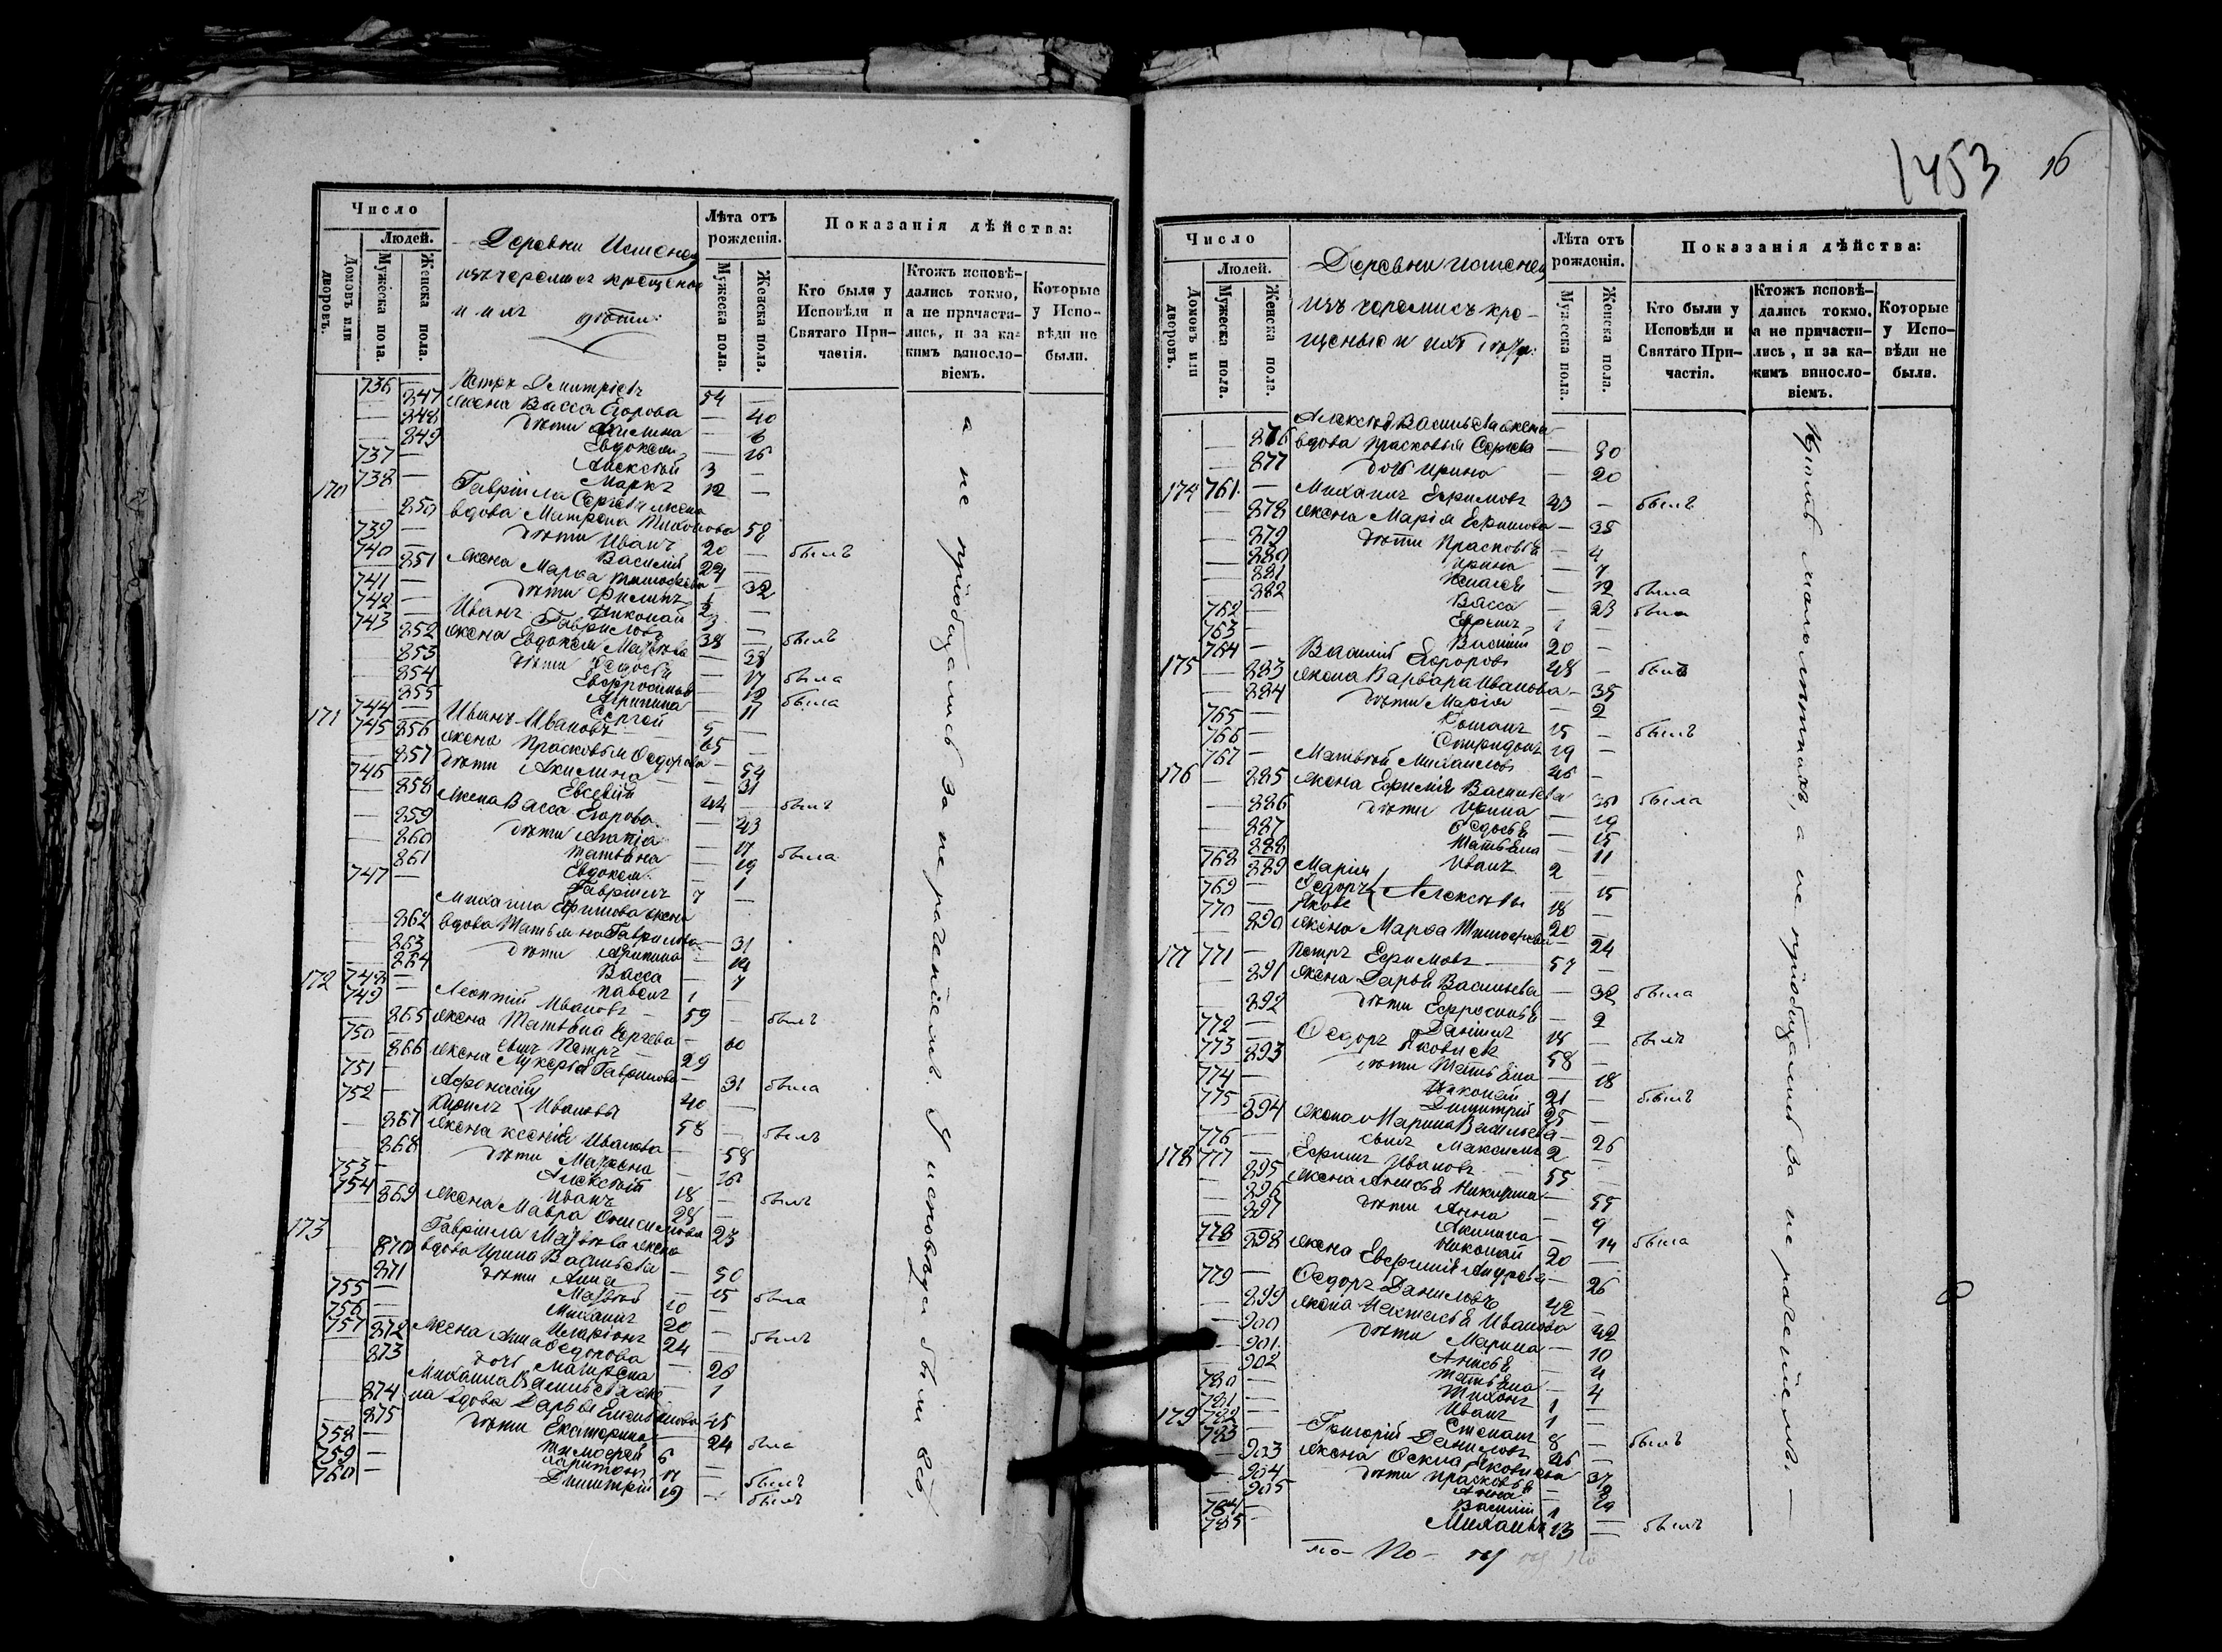 Число
Людей.
Домовъ или дворовъ.
Мужеска пола.
Женска пола.
Деревни
изъ черемисъ крещеные
и ихъ дѣти:
Лѣта отъ рожденія.
Мужеска пола.
Женска пола.
Показанія дѣйства:
Кто были у Исповѣди и Святаго Причастія.
Ктожъ исповѣдались токмо, а не причастились, и за какимъ винословіемъ.
Которые у Исповѣди не были.
736 — Петръ Димитріевъ 54 —
— 847 жена Васса Егорова — 40
— 848 дѣти Акилина — 6
— 849 Евдокія — 16
737 — Алексѣй 3 —
738 — Маркъ 12 —
170 Гавріила Сергѣева жена
— 850 вдова Матрена Тихонова — 58
739 — дѣти Иванъ 20 — былъ
740 — Василій 24
— 851 жена Марѳа Тимоѳеева — 32
741 — дѣти Филипъ 1
742 — Николай 2
743 — Иванъ Гавриловъ 38 — былъ
852 жена Евдокія Матвѣева — 28
853 дѣти Ѳедосья — 17 была
854 Евфросинья — 12 была
855 Агрипина — 11
744 — Сергѣй 5 —
171 745 Иванъ Ивановъ 65 —
856 жена Прасковья Ѳедорова — 54
857 дѣти Акилина — 31
746 — Евсевій 44 — былъ
858 жена Васса Егорова — 43
859 дѣти Агапія — 17 была
860 Татьяна — 19
861 Евдокія — 1
747 — Гавріилъ 7 —
Михаила Ефимова жена
862 вдова Татьяна Гаврилова — 31
863 дѣти Агрипина — 14
864 Васса — 7
748 — Павелъ 1 —
172 749 — Леонтій Ивановъ 59 — былъ
865 жена Татьяна Сергѣева — 60
750 — сынъ Петръ 29
866 жена Лукерія Гаврилова — 31 была
751 — Афонасій 40 —
752 — Кирилъ } Ивановы 58 — былъ
867 жена Ксенія Иванова — 58
868 дѣти Матрена — 16
753 — Алексѣй 18 — былъ
754 — Иванъ 28 —
869 жена Мавра Онисимова 23
173 Гавріила Матвѣева жена
870 вдова Ирина Васильева — 50
871 дѣти Анна — 15 была
755 — Матвѣй 10 —
756 — Михаилъ 20 — былъ
757 — Иларіонъ 24 —
872 жена Анна Ѳедорова — 28
873 дочь Матрена — 1
Михаила Васильева же-
874 на вдова Дарья Емельянова — 45
875 дѣти Екатерина — 24 была
758 — Тимоѳей 6 —
759 — Харитонъ 17 — былъ
760 — Димитрій 19 — былъ
а не пріобщались за нераченіемъ. У исповѣди были всѣ,
1453 16
Число
Людей.
Домовъ или дворовъ.
Мужеска пола.
Женска пола.
Деревни
изъ черемисъ кре-
щеные и ихъ дѣти:
Лѣта отъ рожденія.
Мужеска пола.
Женска пола.
Показанія дѣйства:
Кто были у Исповѣди и Святаго Причастія.
Ктожъ исповѣдались токмо, а не причастились, и за какимъ винословіемъ.
Которые у Исповѣди не были.
Алексѣя Васильева жена
— 876 вдова Прасковья — 50
— 877 дочь Ирина — 20
174 761 — Михаилъ Ефимовъ 43 — былъ
— 878 жена Марія Ефимова — 38
— 879 дѣти Прасковья — 4
— 880 Ирина — 7
— 881 — 12 была
— 882 Васса — 23 была
762 — Ефимъ 1 —
763 — Василій 20 —
175 764 — Василій Егоровъ 48 — былъ
— 883 жена Варвара Иванова — 35
— 884 дѣти Марія — 2
765 — Романъ 15 — былъ
766 — Спиридонъ 19 —
176 767 — Матвѣй Михайловъ 46 —
— 885 жена Ефимія Васильева была
— 886 дѣти Ирина — 19
— 887 Ѳедосья — 15
— 888 Татьяна — 11
768 — Иванъ 2 —
889 Марія — 15
769 — Ѳедоръ } Алексѣевы 18 —
770 — Яковъ 20 —
890 жена Марѳа Тимоѳеева — 24
177 771 — Петръ Ефимовъ 57 —
— 891 жена Дарья Васильева — 32 была
— 892 дѣти Ефросинья — 2
772 — Даніилъ 18 — былъ
773 Ѳедоръ Яковлевъ 58 —
893 дѣти Татьяна — 18
774 — Николай 21 — былъ
775 — Димитрій 25 —
894 жена Марина Васильева — 26
776 — сынъ Максимъ 2 —
178 777 — Ефимъ Ивановъ 55 —
— 895 жена Анисья Никитина — 55
— 896 дѣти Анна — 9
— 897 Акилина — 14 была
778 — Николай 20 —
898 жена Евфимія Андреева — 26
779 — Ѳедоръ Даниловъ 42 —
899 жена Настасья Иванова 42
— 900 дѣти Марина — 10
— 901 Анисья
— 902 Татьяна — 4
780 — Тихонъ 1 —
781 — Иванъ 1 —
782 — Степанъ 8 —
179 783 Григорій Даниловъ 46 — былъ
— 903 жена Ѳекла Яковлева 37
— 904 дѣти Прасковья
— 905 Анна
784 — Василій 1 —
785 — Михаилъ 13 — былъ
кромѣ малолѣтнихъ, а не пріобщались за нерачейемъ. —